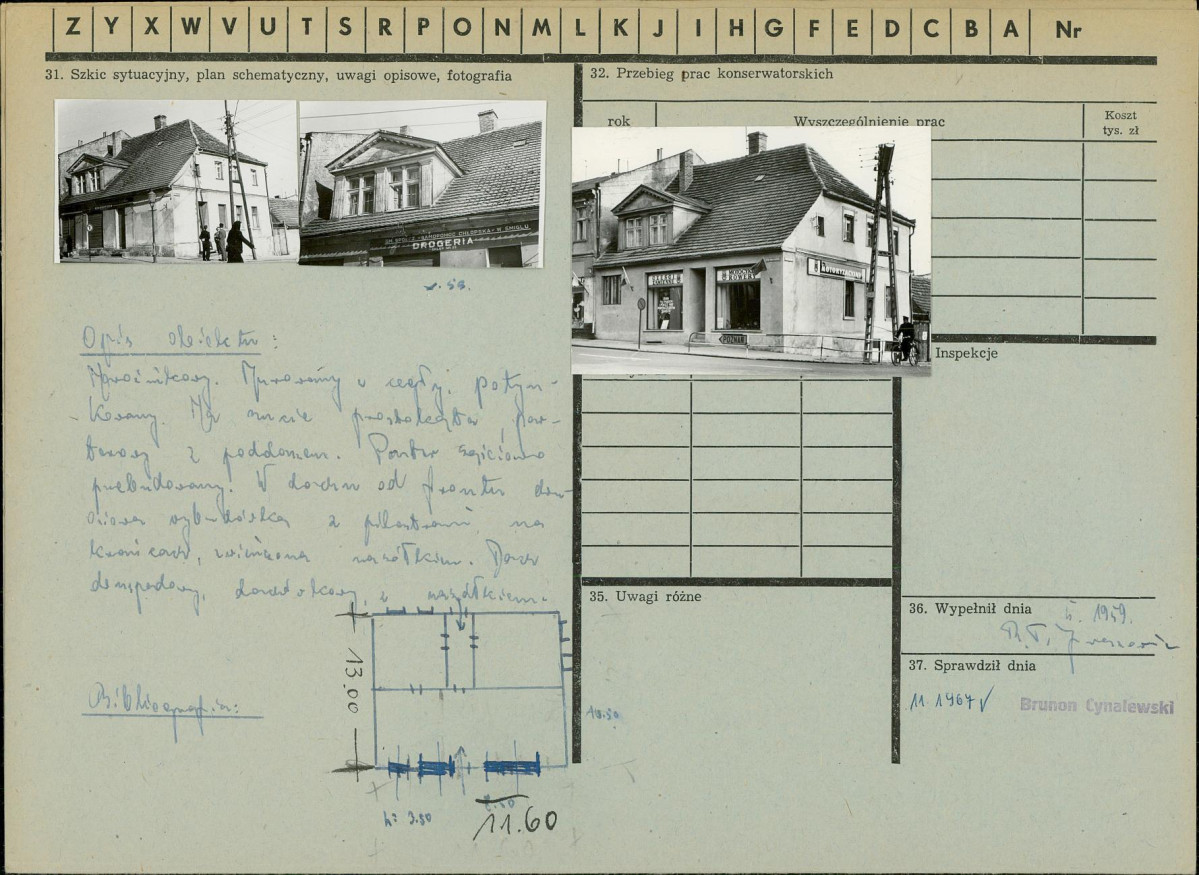 Z Y X W V U T S R P O N M L K J I H G F E D C B A Nr
31. Szkic sytuacyjny, plan schematyczny, uwagi opisowe, fotografia
32. Przebieg prac konserwatorskich
rok
Wyszczególnienie prac
Koszt
tys. zł
GM. SPÓŁDZ. "SAMOPOMOC CHŁOPSKA" W ŚMIGLU
DROGERIA
ROWERY
MOTORYZACYJNY
POZNAŃ
Opis obiektu:
Narożnikowy. Murowany z cegły, potyn-
kowany. Na rzucie prostokąta, par-
terowy z poddaszem. Parter częściowo
przebudowany. W dachu od frontu
wybudówka z pilastrami na
krańcach, zwieńczona naczółkiem. Dach
dwuspadowy, dachówkowy, z naczółkiem.
Bibliografia:
13.00
h= 3.80
11.60
10.50
Inspekcje
35. Uwagi różne
36. Wypełnił dnia
1959.
37. Sprawdził dnia
11. 1967
Brunon Cynalewski